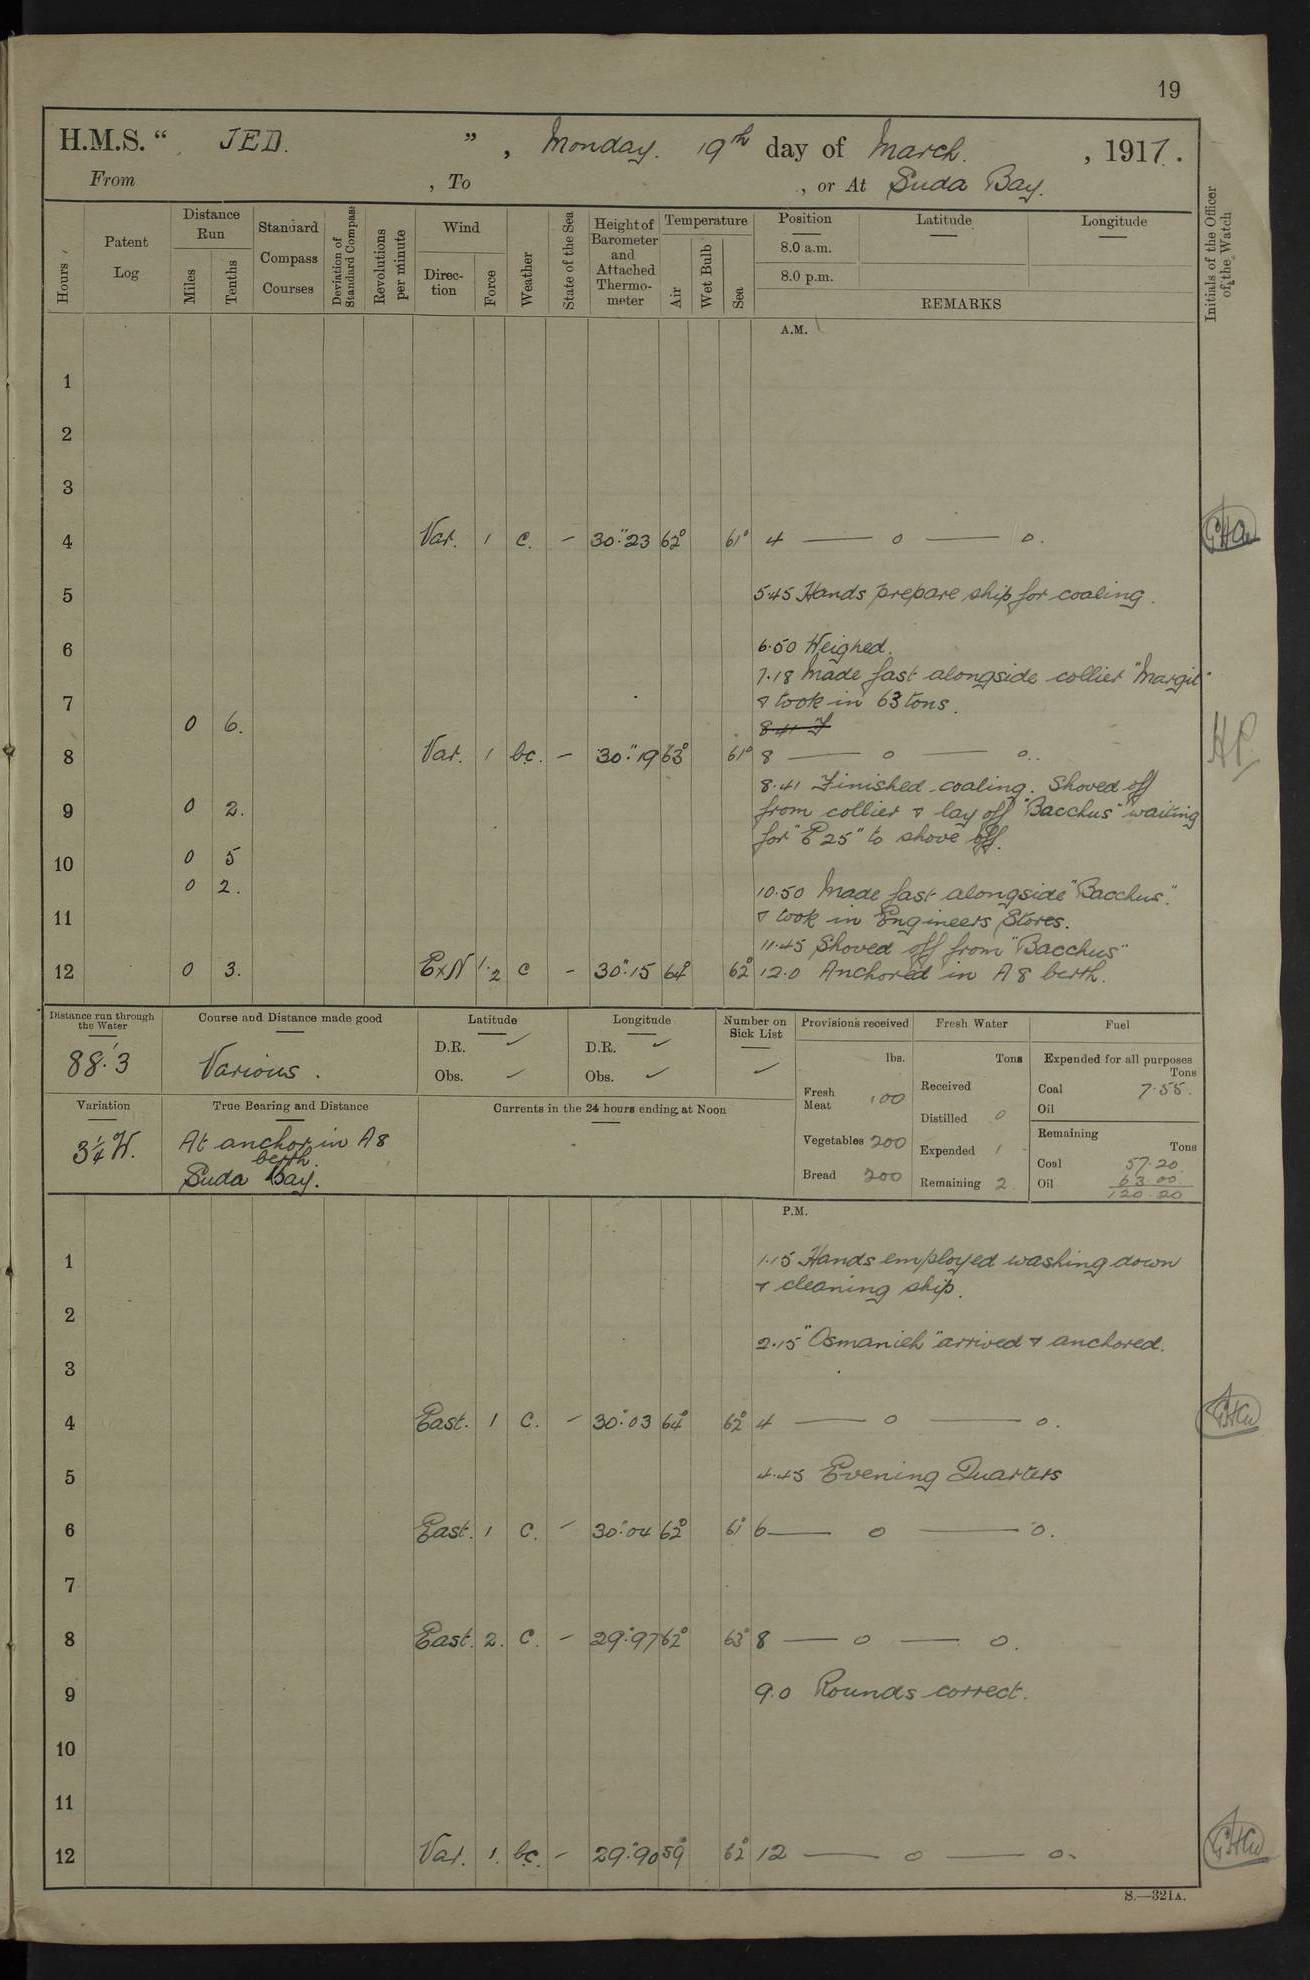 19
H.M.S. “ JED. ” , Monday. 19th day of March. , 1917.
From , To , or At Suda Bay.
Hours
Patent Log
Distance Run
Miles
Tenths
Standard Compass Courses
Deviation of Standard Compass
Revolutions per minute
Wind
Direc-tion
Force
Weather
State of the Sea
Height of Barometer and Attached Thermo-meter
Temperature
Air
Wet Bulb
Sea
Position
8.0 a.m.
8.0 p.m.
Latitude
Longitude
REMARKS
Initials of the Officer of the Watch
A.M.
1
2
3
4 Var. 1 c. – 30.23 62° 61° 4 — o — o.
5 5.45 Hands prepare ship for coaling.
6 6.50 Weighed.
7.18 Made fast alongside collier "Margit"
7 & took in 63 tons.
0 6. 8.41 F
8 Var. 1 bc. – 30.19 63° 61° 8 — o — o.
8.41 Finished coaling. Shoved off
9 0 2. from collier & lay off "Bacchus" waiting
for "E 25" to shove off.
10 0 5
0 2. 10.50 Made fast alongside "Bacchus".
11 & took in Engineers Stores.
11.45 Shoved off from "Bacchus"
12 0 3. ExN 1.2 c – 30.15 64° 62° 12.0 Anchored in A8 berth.
HP.
Distance run through the Water
88.3
Course and Distance made good
Various.
Latitude
D.R. ✓
Obs. ✓
Longitude
D.R. ✓
Obs. ✓
Number on Sick List
✓
Provisions received
lbs.
Fresh Meat 100
Vegetables 200
Bread 200
Fresh Water
Tons
Received
Distilled 0
Expended 1
Remaining 2
Fuel
Expended for all purposes
Tons
Coal 7.55.
Oil
Remaining
Tons
Coal 57.20
Oil 63.00
120.20
Variation
3¼ W.
True Bearing and Distance
At anchor in A8
berth.
Suda Bay.
Currents in the 24 hours ending at Noon
P.M.
1 1.15 Hands employed washing down
& cleaning ship.
2
2.15 "Osmanieh" arrived & anchored.
3
4 East. 1 c. – 30.03 64° 62° 4 — o — o.
5 4.45 Evening Quarters
6 East. 1 c. – 30.04 62° 61° 6 — o — o.
7
8 East. 2. c. – 29.97 62° 63° 8 — o — o.
9 9.0 Rounds correct.
10
11
12 Var. 1. bc. – 29.90 59° 62° 12 — o — o.
S.—321A.